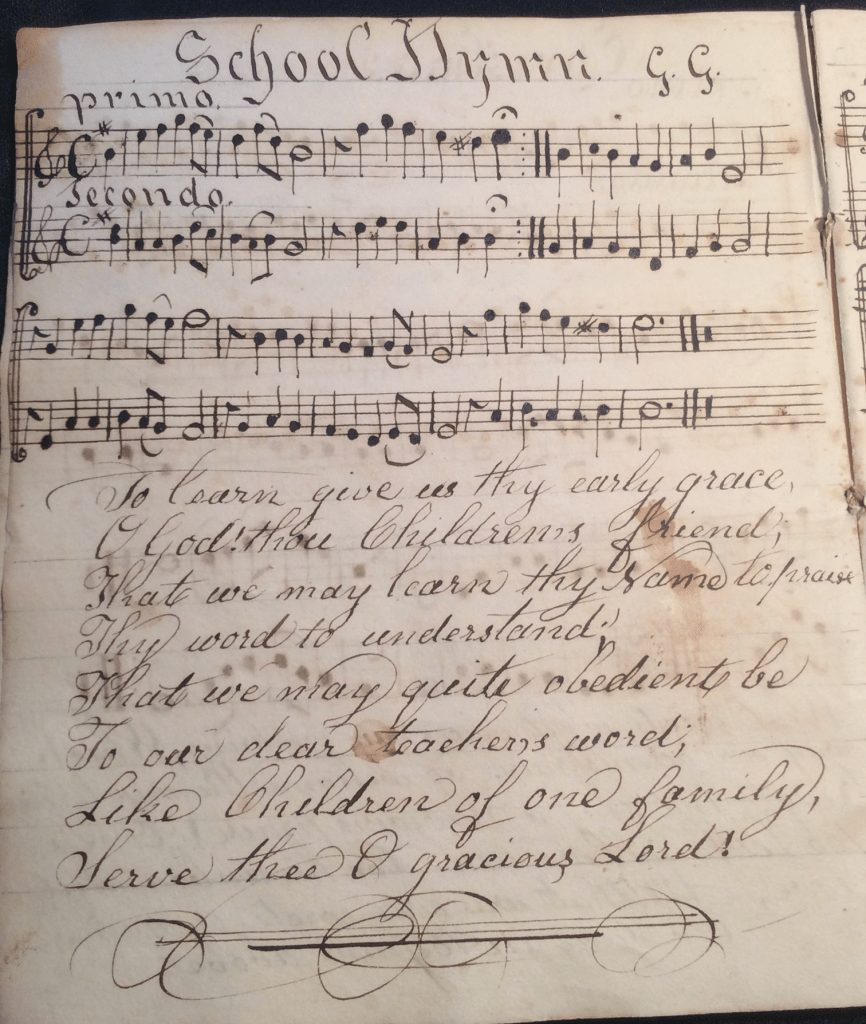 School Hymn. G. G.
primo.
Secondo.
To learn give us thy early grace,
O God! thou Children's friend;
That we may learn thy Name to praise
Thy word to understand;
That we may quite obedient be
To our dear teachers word;
Like Children of one family,
Serve thee O gracious Lord!